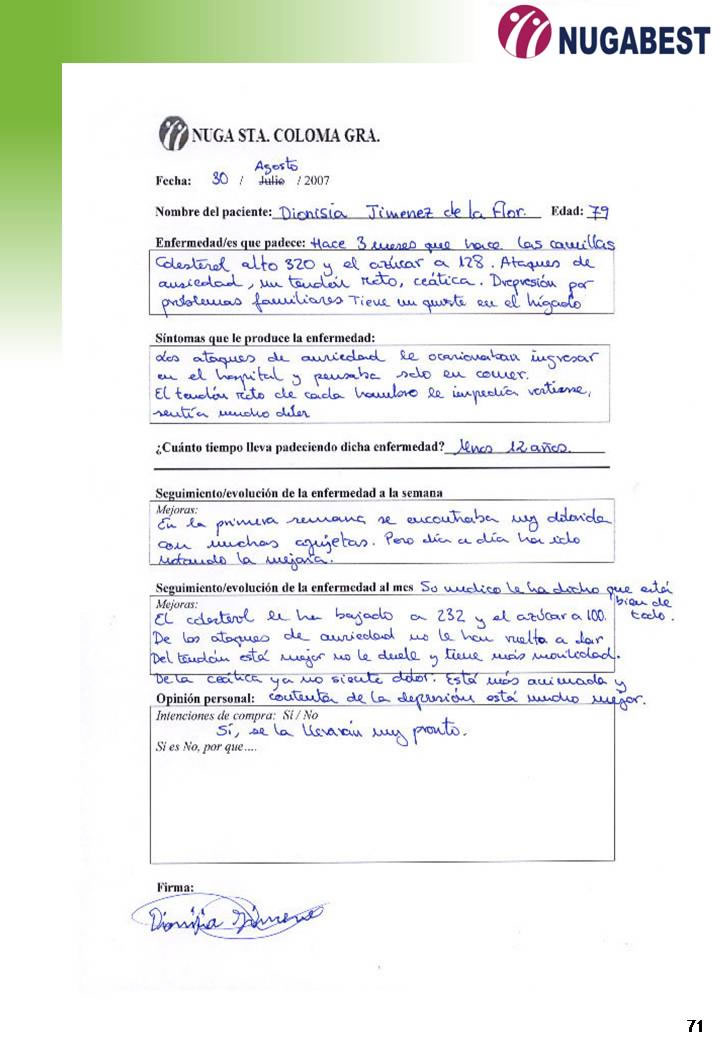 NUGABEST
NUGA STA. COLOMA GRA.
Agosto
Fecha: 30 / Julio / 2007
Nombre del paciente: Dionisia Jimenez de la Flor. Edad: 79
Enfermedad/es que padece: Hace 3 meses que hace las camillas
Colesterol alto 320 y el azúcar a 128. Ataques de
ansiedad, un tendón roto, ceática. Drepresión por
problemas familiares Tiene un quiste en el hígado
Síntomas que le produce la enfermedad:
Los ataques de ansiedad le ocasionaban ingresar
en el hospital y pensaba solo en comer.
El tendón roto de cada hombro le impedía vestirse,
sentía mucho dolor
¿Cuánto tiempo lleva padeciendo dicha enfermedad? Unos 12 años.
Seguimiento/evolución de la enfermedad a la semana
Mejoras:
En la primera semana se encontraba muy dolorida
con muchas agujetas. Pero día a día ha ido
notando la mejoría.
Seguimiento/evolución de la enfermedad al mes Su medico le ha dicho que está
bien de
Mejoras:
El colesterol le ha bajado a 232 y el azúcar a 100. todo.
De los ataques de ansiedad no le han vuelto a dar
Del tendón está mejor no le duele y tiene más movilidad.
De la ceática ya no siente dolor. Está más animada y
Opinión personal: contenta de la depresión está mucho mejor.
Intenciones de compra: Sí / No
Sí, se la llevarán muy pronto.
Si es No, por que....
Firma:
Dionisia Jimenez
71